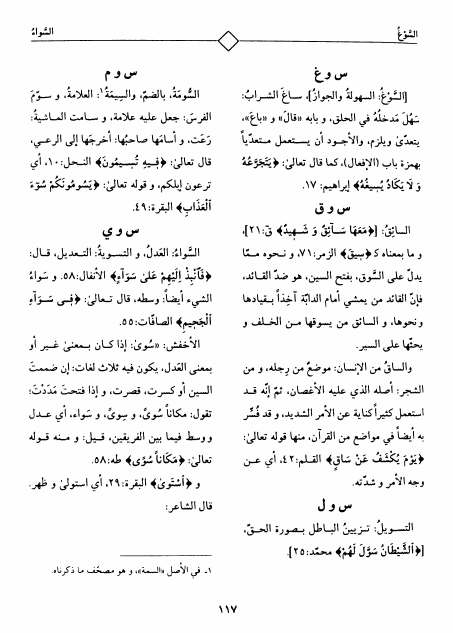 السَّوْغُ
السَّواءُ
س و غ
[السَّوْغُ: السهولةُ والجوازُ]، ساغَ الشرابُ:
سَهُلَ مَدخلُهُ في الحلق، و بابه «قالَ» و «باعَ»،
يتعدّىٰ ويلزم، والأجود أن يستعمل متعدّياً
بهمزة باب (الإفعال)، كما قال تعالىٰ: ﴿يَتَجَرَّعُهُ
وَ لَا يَكَادُ يُسِيغُهُ﴾ إبراهيم: ١٧.
س و ق
السائِقُ: [﴿مَعَهَا سَآئِقٌ وَ شَهِيدٌ﴾ قۤ:٢١]،
و ما بمعناه كـ﴿سِيقَ﴾ الزمر: ٧١، و نحوه ممّا
يدلّ على السَّوق، بفتح السين، هو ضدّ القائد،
فإنّ القائد من يمشي أمام الدابّة آخِذاً بقيادها
ونحوها، و السائق من يسوقها من الخلف و
يحثّها على السير.
والساقُ من الإنسان: موضعٌ من رجله، و من
الشجر: أصله الذي عليه الأغصان، ثمّ إنّه قد
استعمل كثيراً كناية عن الأمر الشديد، و قد فُسِّر
به أيضاً في مواضع من القرآن، منها قوله تعالىٰ:
﴿يَوْمَ يُكْشَفُ عَنْ سَاقٍ﴾ القلم:٤٢، أي عن
وجه الأمر و شدّته.
س و ل
التسويلُ: تزيينُ الباطل بصورة الحقّ،
[﴿ٱلشَّيْطَانُ سَوَّلَ لَهُمْ﴾ محمّد: ٢٥].
س و م
السُّومَةُ، بالضمّ، والسِيمَةُ¹: العلامةُ، و سوّمَ
الفرسَ: جعل عليه علامة، و سامت الماشيةُ:
رَعَت، و أسامَها صاحبُها: أخرجَها إلى الرعي،
قال تعالىٰ: ﴿فِيهِ تُسِيمُونَ﴾ النحل: ١٠، أي
ترعون إبلكم، و قوله تعالىٰ: ﴿يَسُومُونَكُمْ سُوٓءَ
ٱلْعَذَابِ﴾ البقرة: ٤٩.
س و ي
السَّواءُ: العَدلُ، و التسويةُ: التعديل، قال:
﴿فَٱنْبِذْ إِلَيْهِمْ عَلَىٰ سَوَآءٍ﴾ الأنفال: ٥٨. و سَواءُ
الشيء أيضاً: وسطه، قال تعالىٰ: ﴿فِى سَوَآءِ
ٱلْجَحِيمِ﴾ الصافّات: ٥٥.
الأخفش: «سُوىٰ: إذا كان بمعنىٰ غير أو
بمعنى العَدل، يكون فيه ثلاث لغات: إن ضممتَ
السين أو كسرت، قصرت، و إذا فتحتَ مَدَدْتَ:
تقول: مكاناً سُوىً، و سِوىً، و سَواء، أي عدل
و وسط فيما بين الفريقين، قيل: و منه قوله
تعالىٰ: ﴿مَكَاناً سُوًى﴾ طه: ٥٨.
و ﴿ٱسْتَوَىٰ﴾ البقرة: ٢٩، أي استولىٰ و ظهر.
قال الشاعر:
١ـ في الأصل «السمة»، و هو مصحّف ما ذكرناه.
١١٧